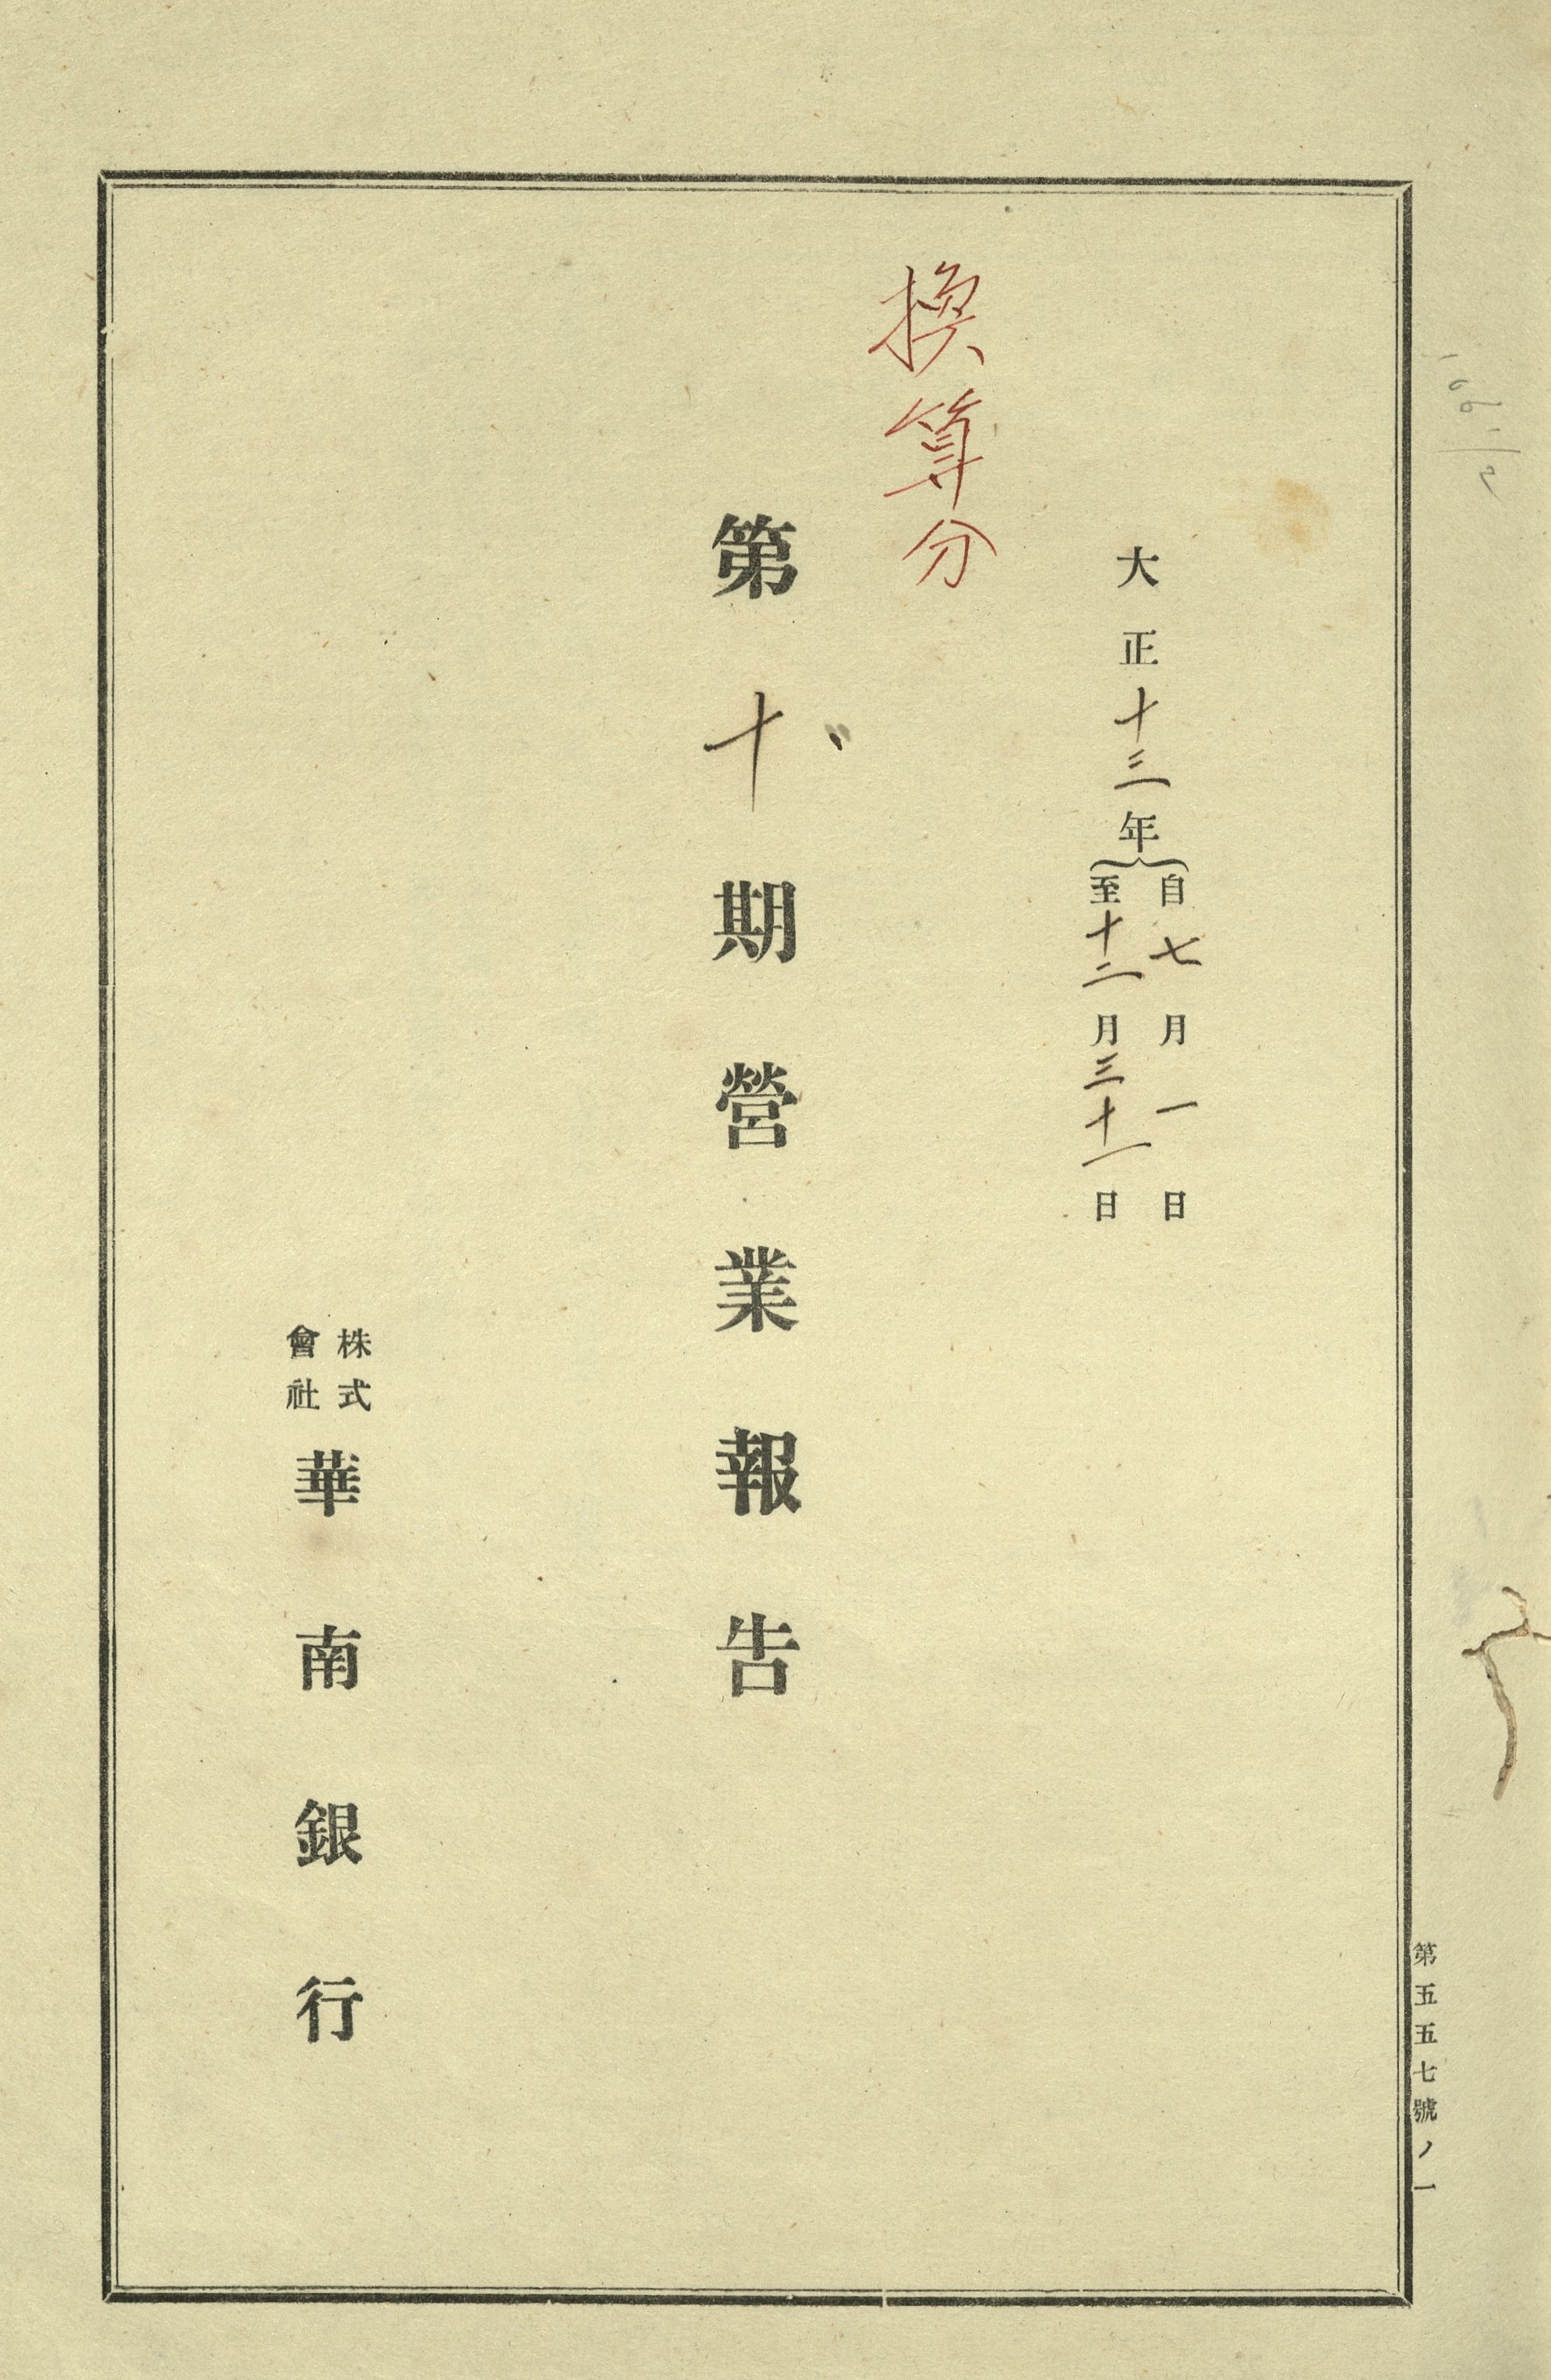 大正十三年
自七月一日
至十二月三十一日
換算分
第十期營業報告
株式
會社
華南銀行
第五五七號ノ一